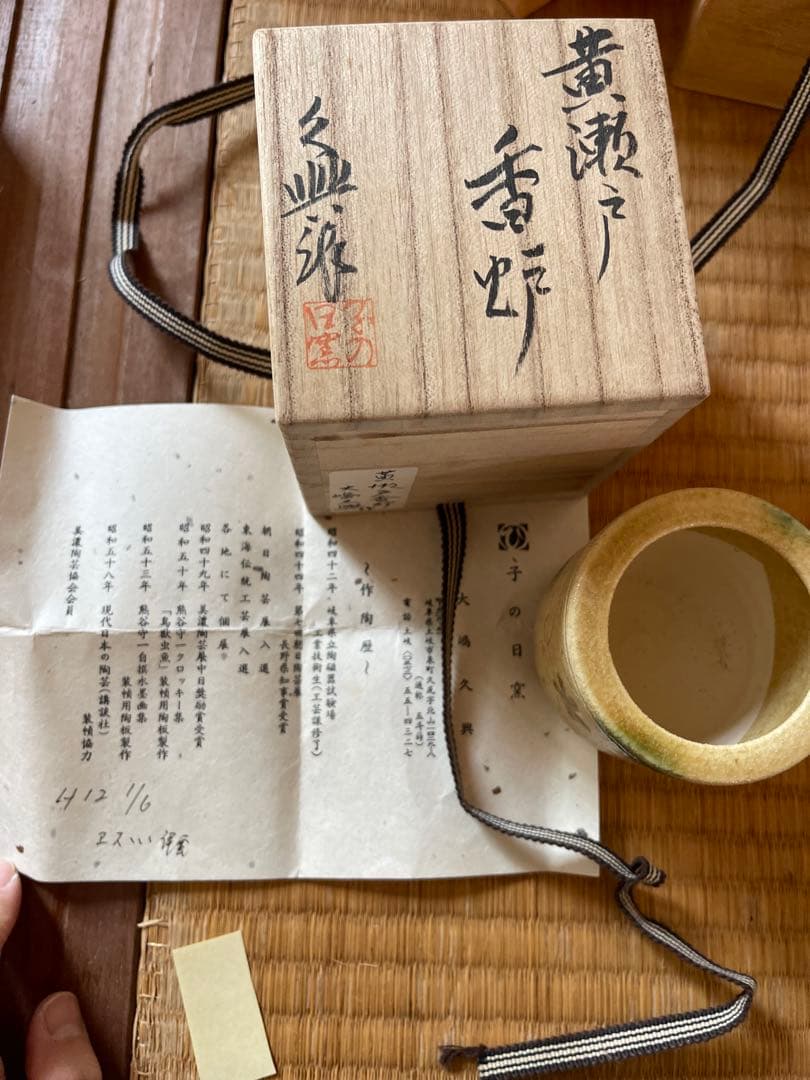 黄瀬戸
香炉
久興作
子の
日窯
子の日窯
大嶋久興
岐阜県土岐市泉町久尻字北山
電話 土岐
〜作陶歴〜
昭和四十二年 岐阜県立陶磁器試験場
工業技術生(工芸課修了)
昭和四十四年 第七回朝日陶芸展
長野県知事賞受賞
朝日陶芸展入選
東海伝統工芸展入選
各地にて個展
昭和四十九年 美濃陶芸展中日奨励賞受賞
昭和五十年 熊谷守一クロッキー集
「鳥獣虫魚」装幀用陶板製作
昭和五十三年 熊谷守一自撰水墨画集
装幀用陶板製作
昭和五十八年 現代日本の陶芸(講談社)
装幀協力
美濃陶芸協会会員
H12 1/6